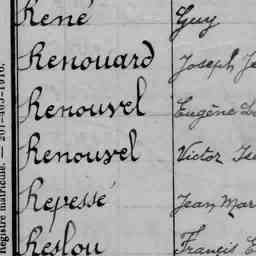 René Guy
Renouard Joseph
Renouvel Eugène
Renouvel Victor
Repessé Jean Mar
Reslou Francis E
Registre matricule. — 261-463-1916.